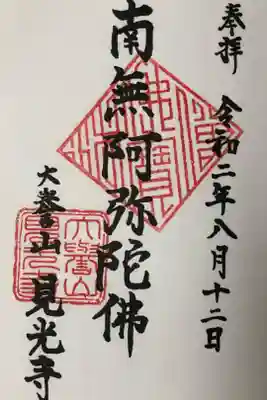 奉拝 令和二年八月十二日
南無阿弥陀佛
大誉山 見光寺